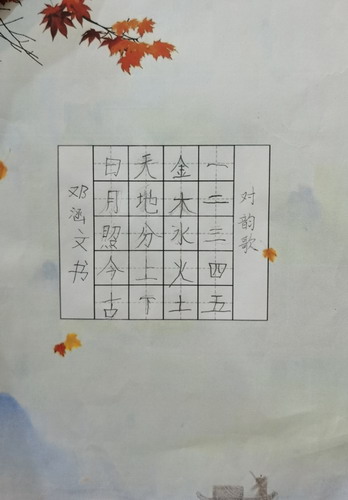 对韵歌
一二三四五
金木水火土
天地分上下
日月照今古
邓涵文书